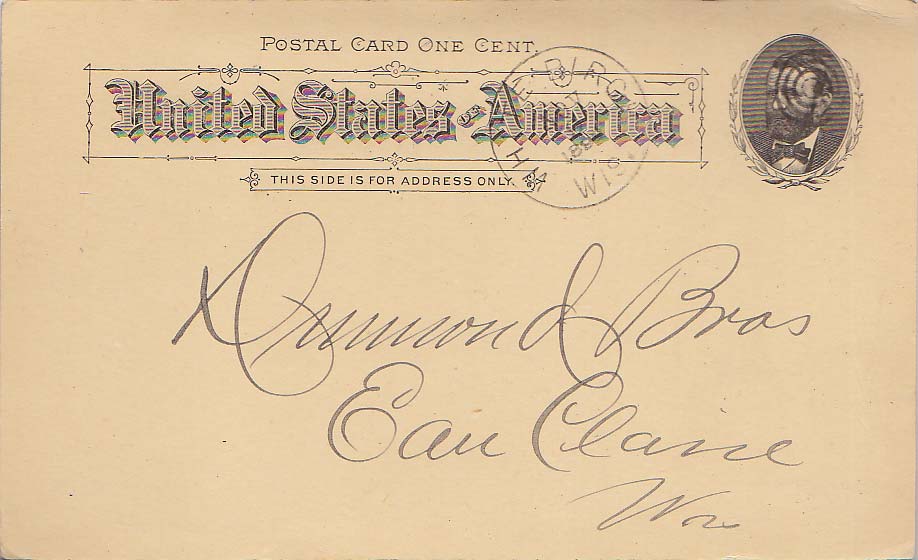 POSTAL CARD ONE CENT.
United States of America
THIS SIDE IS FOR ADDRESS ONLY.
WIS.
Drummond Bros
Eau Claire
Wis